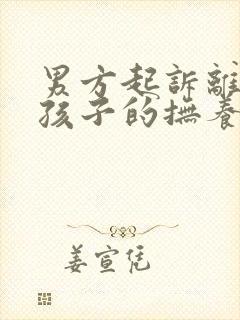 男方起訴離
孩子的撫養
姜宣凭